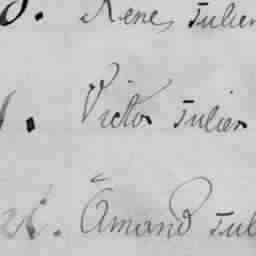 Rene Julien
Victor Julien
Amand Jul